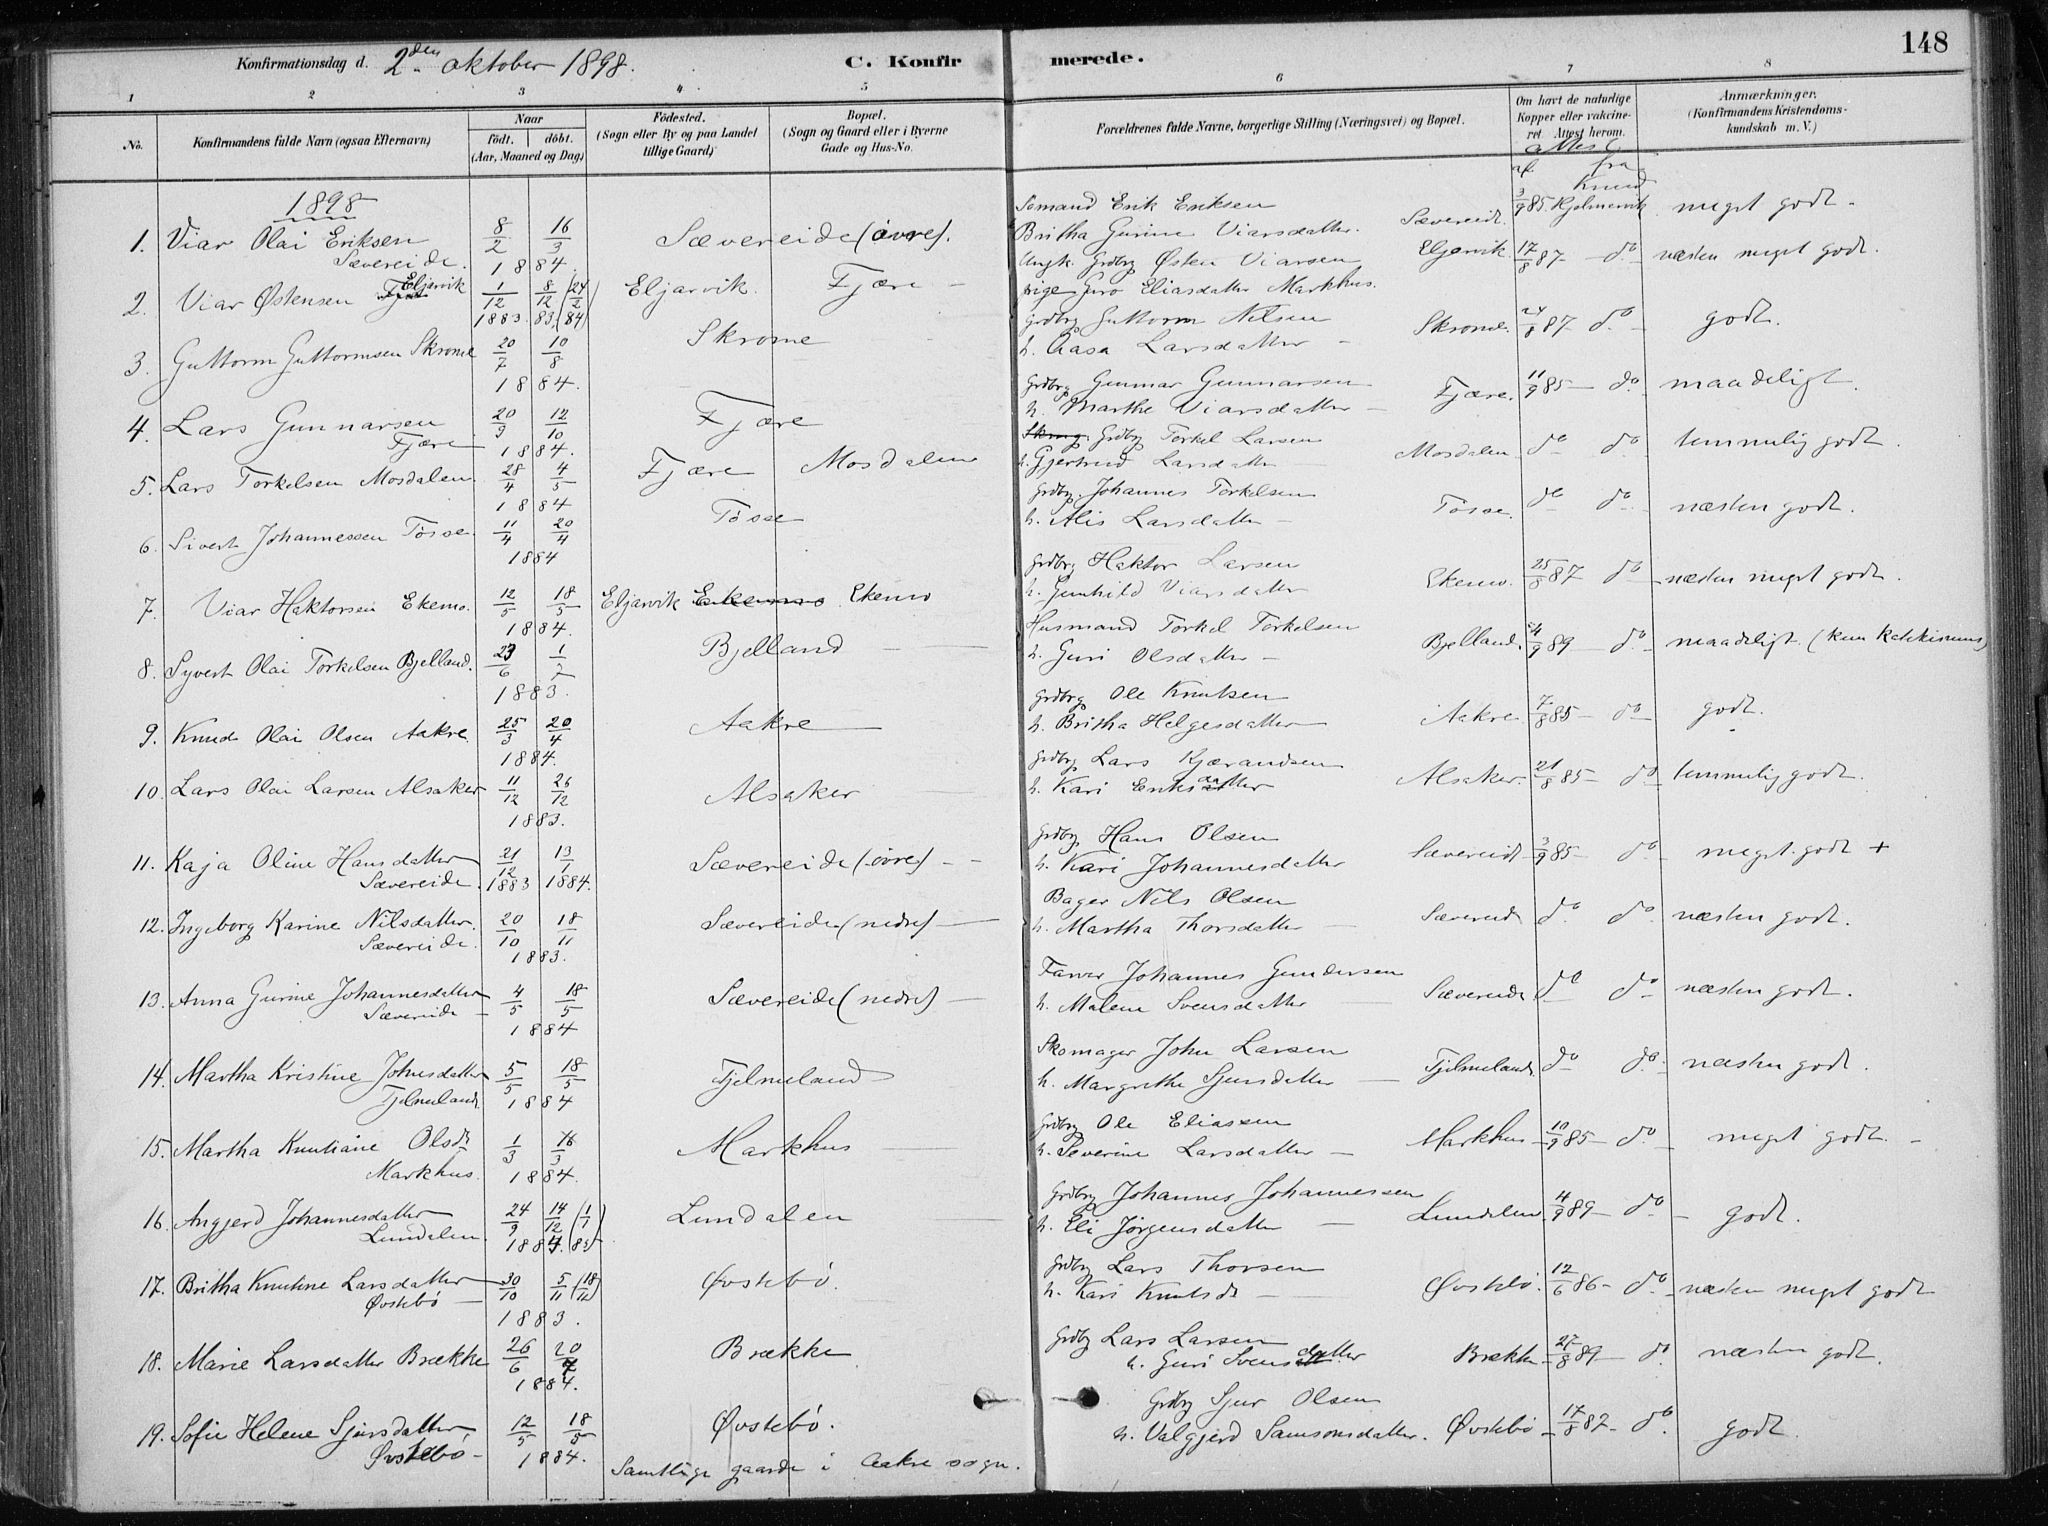 Konfirmationsdag d. 2den oktober 1898.
C. Konfirmerede.
148
1 2 3 4 5 6 7 8
No.
Konfirmandens fulde Navn (ogsaa Efternavn)
Naar
födt. döbt.
(Aar, Maaned og Dag)
Födested.
(Sogn eller By og paa Landet tillige Gaard)
Bopæl.
(Sogn og Gaard eller i Byerne Gade og Hus-No.
Forældrenes fulde Navne, borgerlige Stilling (Næringsvei) og Bopæl.
Om havt de naturlige Kopper eller vakcineret. Attest herom.
Anmærkninger.
(Konfirmandens Kristendomskundskab m. V.)
attest
af fra
Knud
1898
1. Viar Olai Eriksen Sævereide. 8/2 16/3 1884. Sævereide (övre). Sømand Erik Eriksen Britha Gurine Viarsdatter. Sævereide. 3/9 85. Hjelmervik meget godt -
2. Viar Østensen Eljarvik 1/12 1883 8/12 83. (24/2 84) Eljarvik. Fjære - Ungk. Grdbrg Østen Viarsen pige Guro Eliasdatter Markhus. Eljarvik 17/8 87 - do - næsten meget godt.
3. Guttorm Guttormsen Skrome 20/7 10/8 1884. Skrome Grdbrg Guttorm Nilsen h. Aasa Larsdatter - Skrome. 24/8 87 - do - godt.
4. Lars Gunnarsen Fjære 20/9 12/10 1884. Fjære Grdbrg Gunnar Gunnarsen h. Marthe Viarsdatter - Fjære. 11/9 85 - do. maadeligt.
5. Lars Torkelsen Mosdalen 28/4 4/5 1884 Fjære Mosdalen Grdbrg Torkel Larsen h. Gjertrud Larsdatter - Mosdalen. do do temmelig godt.
6. Sivert Johannessen Tösse 11/4 20/4 1884 Tösse Grdbrg. Johannes Torkelsen h. Alis Larsdatter - Tösse. do do næsten godt.
7. Viar Haktorsen Ekemo. 12/5 18/5 1884. Eljarvik Ekemo Ekemo Grdbrg Haktor Larsen h. Gunhild Viarsdatter Ekemo. 25/8 87 do - næsten meget godt.
8. Syvert Olai Torkelsen Bjelland. 23/6 1/7 1883. Bjelland - - Husmand Torkel Torkelsen h. Guri Olsdatter - Bjelland. 4/9 89 - do - maadeligt (kun katekismus)
9. Knud Olai Olsen Aakre. 25/3 20/4 1884. Aakre Grdbrg Ole Knutsen h. Britha Helgesdatter Aakre 7/8 85 - do - godt.
10. Lars Olai Larsen Alsaker 11/12 26/12 1883. Alsaker Grdbrg Lars Kjærandsen h. Kari Eriksdatter Alsaker. 21/8 85 - do temmelig godt.
11. Kaja Oline Hansdatter Sævereide. 21/12 1883 13/1 1884. Sævereide (övre) - - Grdbrg Hans Olsen h. Kari Johannesdatter Sævereide 3/9 85 - do - meget godt +
12. Ingeborg Karine Nilsdatter. Sævereide. 20/10 18/11 1883. Sævereide (nedre) - Bager Nils Olsen h. Martha Thorsdatter - Sævereide do do næsten godt.
13. Anna Gurine Johannesdatter Sævereide - 4/5 18/5 1884 Sævereide (nedre) - Farver Johannes Gundersen h. Malene Svensdatter - Sævereide do do næsten godt.
14. Martha Kristine Johnsdatter Fjelmeland. 5/5 18/5 1884 Fjelmeland Skomager John Larsen h. Margrethe Sjursdatter - Fjelmeland. do do næsten godt.
15. Martha Knutiane Olsdr Markhus. 1/3 16/3 1884. Markhus Grdbrg Ole Eliassen h. Severine Larsdatter - Markhus - 10/9 85 - do - meget godt. -
16. Angjerd Johannesdatter Lundalen. 24/9 14/12 (1/1) 1884. (85) Lundalen Grdbrg Johannes Johannessen h. Eli Jörgensdatter - Lundalen 4/9 89 - do - godt.
17. Britha Knutine Larsdatter Øvstebö - 30/10 5/11 (18/11) 1883. Øvstebö. Grdbrg Lars Thorsen h. Kari Knutsdr - Øvstebö. 12/6 86 - do - næsten meget godt
18. Marie Larsdatter Brække 26/6 20/7 1884. Brække Grdbrg Lars Larsen h. Guri Svensdatter Brække - 27/8 89 - do. næsten godt.
19. Sofie Helene Sjursdatter Øvstebö - 12/5 18/5 1884. Øvstebö. Grdbrg Sjur Olsen h. Valgjerd Samsonsdatter. Øvstebö - 17/8 87 - do. godt.
Samtlige gaarde i Aakre sogn.